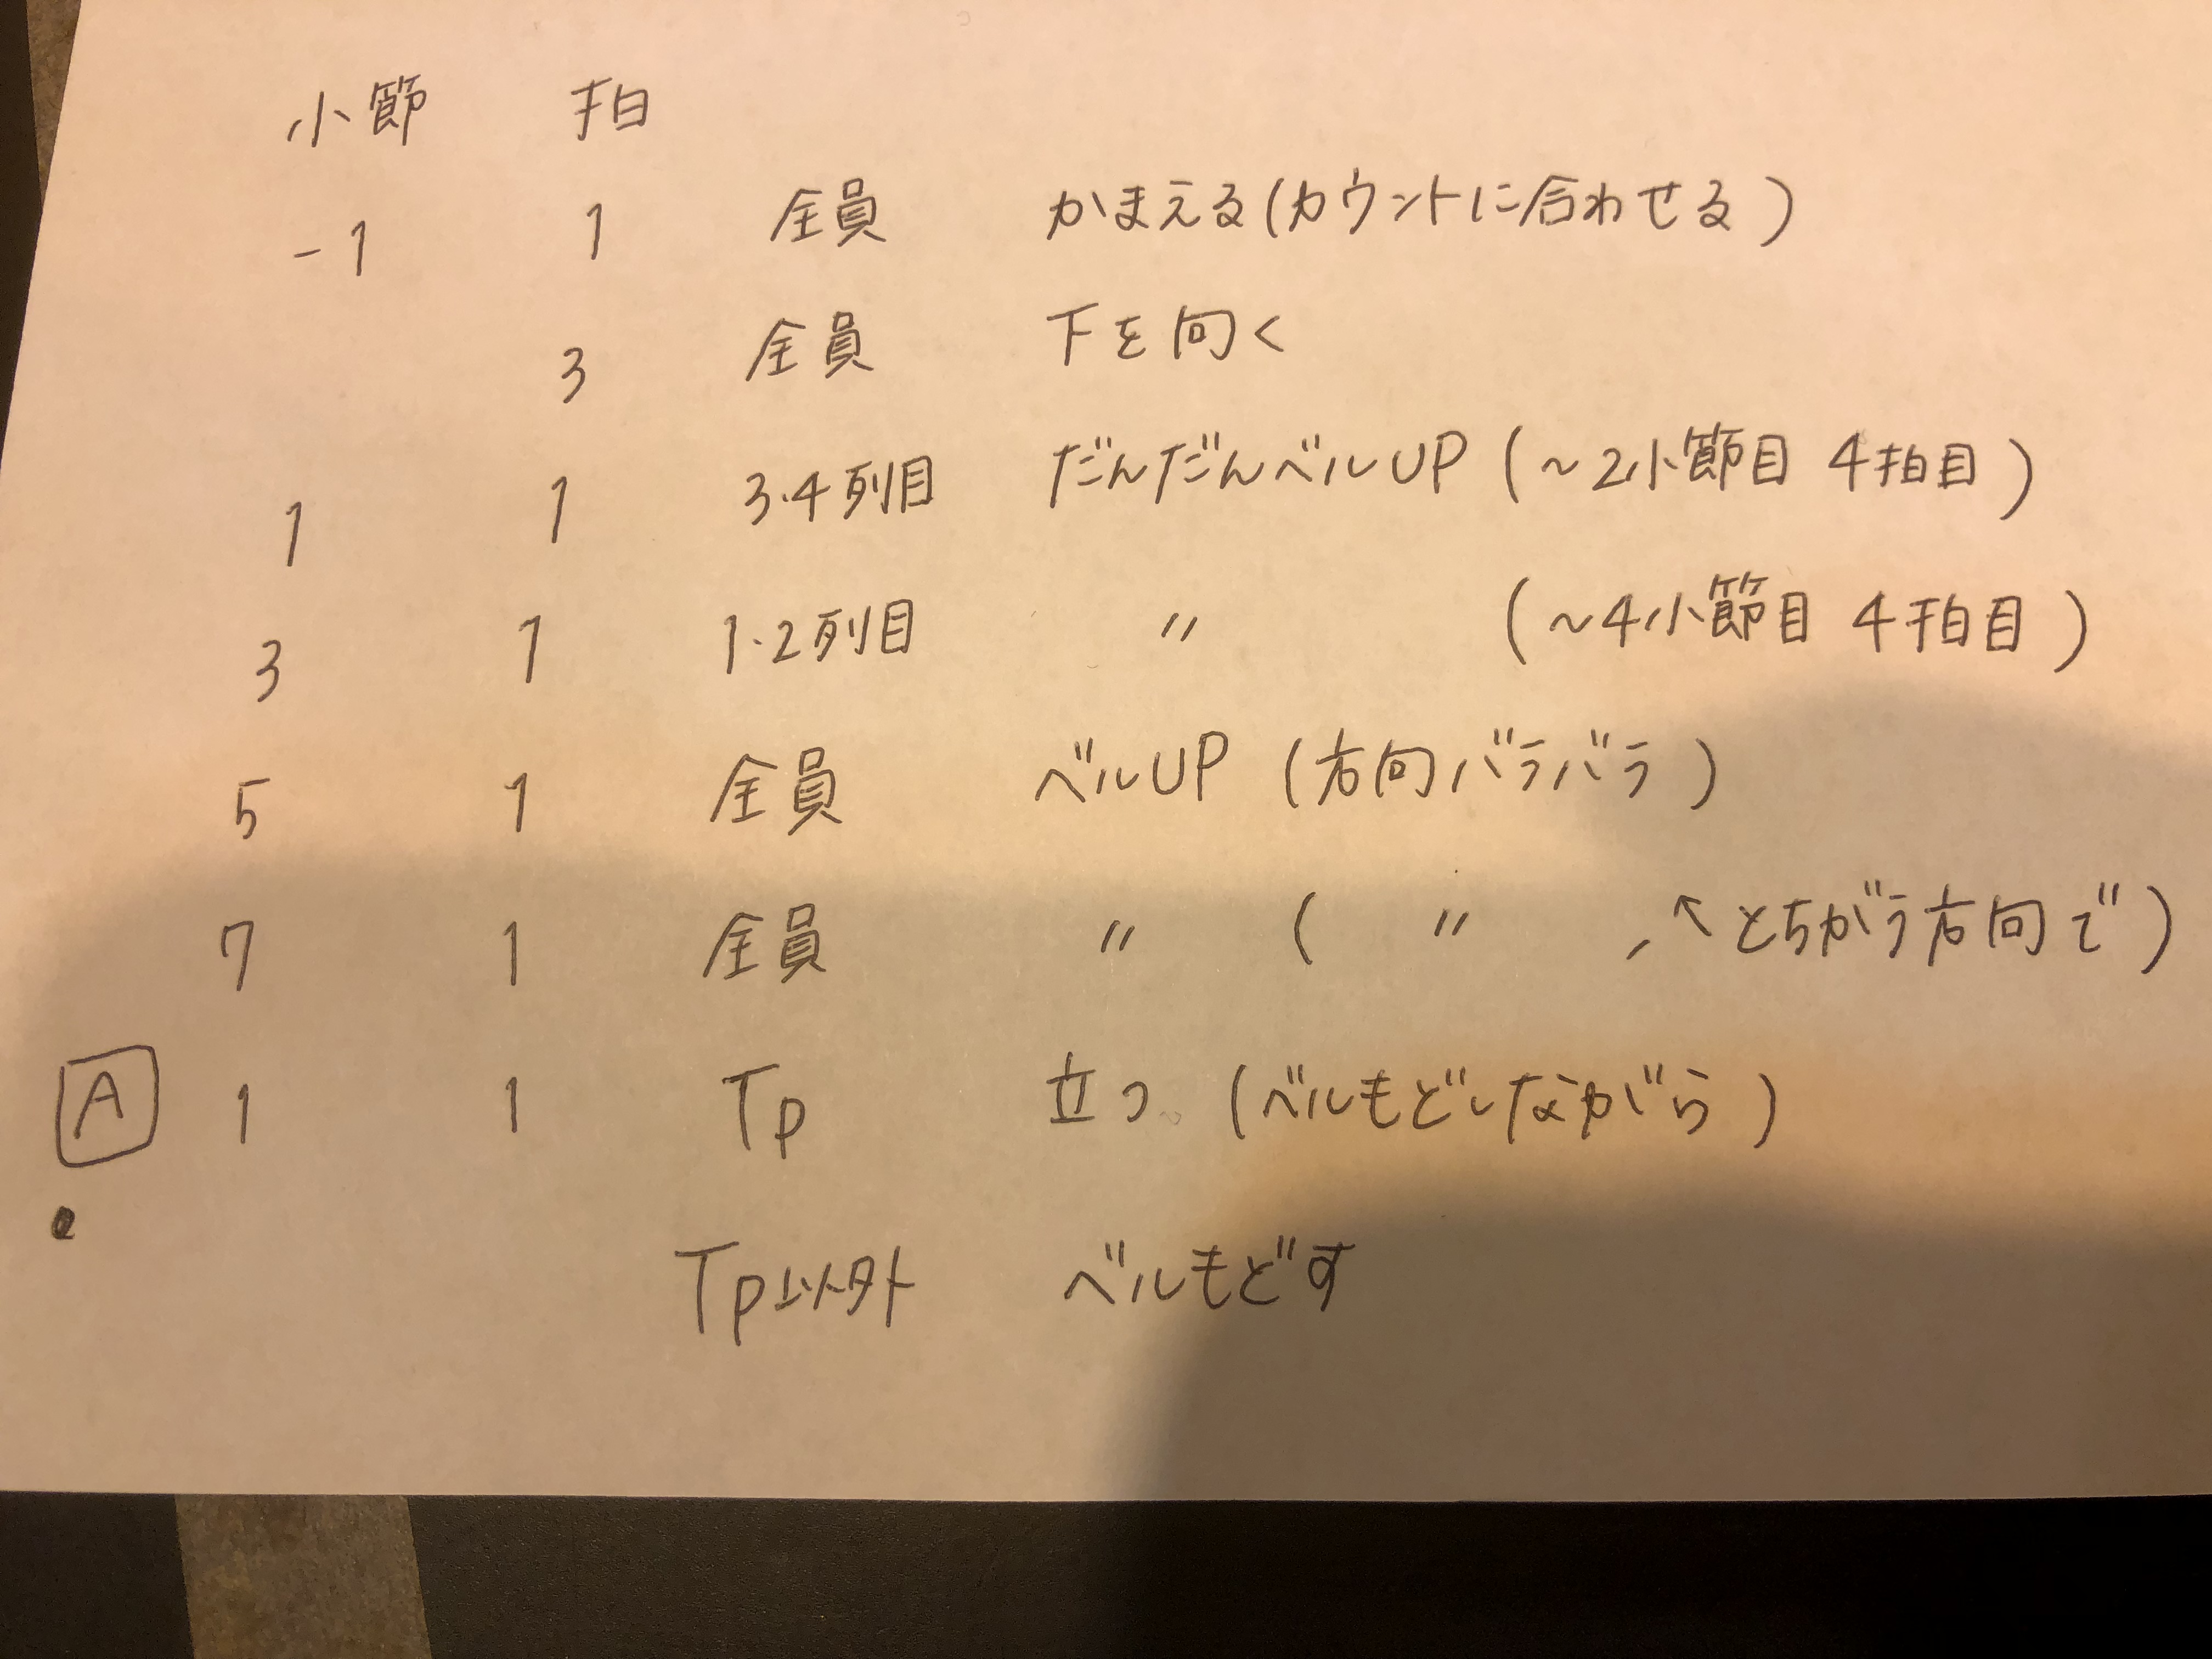 小節 拍
-1 1 全員 かまえる(カウントに合わせる)
3 全員 下を向く
1 1 3.4列目 だんだんベルUP (~2小節目 4拍目)
3 1 1.2列目 〃 (~4小節目 4拍目)
5 1 全員 ベルUP (方向バラバラ)
7 1 全員 〃 ( 〃 、↖とちがう方向で)
A 1 1 Tp 立つ (ベルもどしながら)
Tp以外 ベルもどす